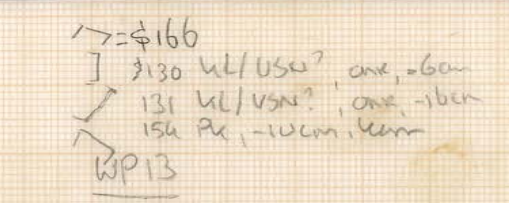 =$166
$130 UL/USN? , one, -6cm
131 UL/USN? , one, -16cm
154 Pk, -10cm,
WP13